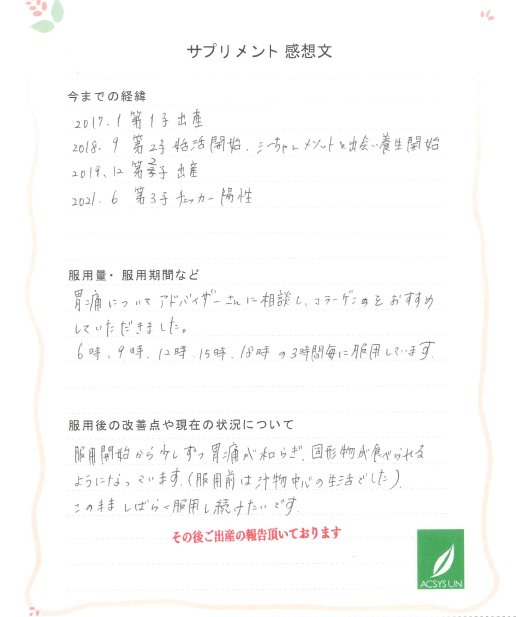 サプリメント 感想文
今までの経緯
2017.1 第1子出産
2018.9 第2子妊活開始、シーちゃんメソッドと出会い養生開始
2019.12 第2子出産
2021.6 第3子チェッカー陽性
服用量・服用期間など
胃痛についてアドバイザーさんに相談し、コラーゲンをおすすめ
していただきました。
6時、9時、12時、15時、18時の3時間毎に服用しています。
服用後の改善点や現在の状況について
服用開始から少しずつ胃痛が和らぎ、固形物が食べられる
ようになっています。(服用前は汁物中心の生活でした)。
このまましばらく服用し続けたいです。
その後ご出産の報告頂いております
ACSYSUN